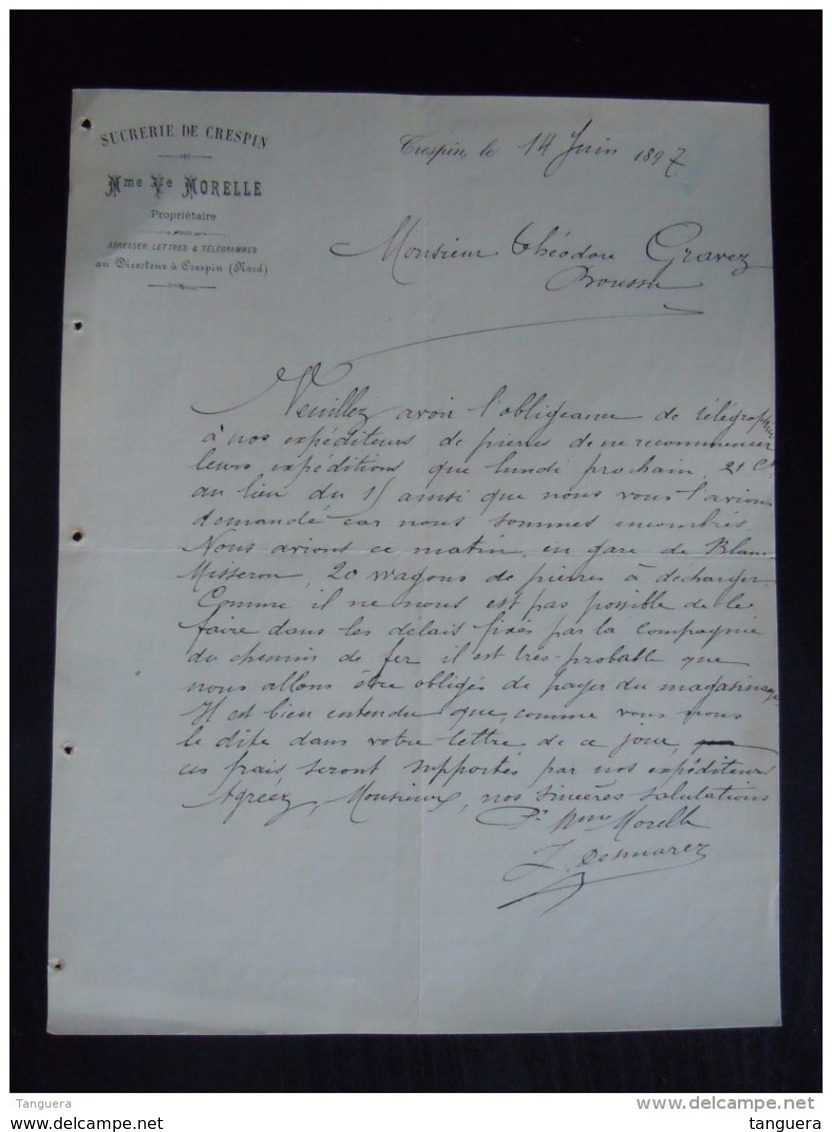 SUCRERIE DE CRESPIN
Mme Ve MORELLE
Propriétaire
ADRESSER LETTRES & TÉLÉGRAMMES
au Directeur à Crespin (Nord)
Crespin, le 14 Juin 1897
Monsieur Théodore Gravez
Boussu
Veuillez avoir l'obligeance de télégraphier
à nos expéditeurs de pierres de ne recommencer
leurs expéditions que lundi prochain, 21 Ct
au lieu du 15 ainsi que nous vous l'avions
demandé car nous sommes encombrés.
Nous avions ce matin, en gare de Blanc
Misseron, 20 wagons de pierres à décharger.
Comme il ne nous est pas possible de le
faire dans les délais fixés par la compagnie
du chemin de fer il est très probable que
nous allons être obligés de payer du magasinage.
Il est bien entendu que, comme vous nous
le dites dans votre lettre de ce jour,
ces frais, seront supportés par nos expéditeurs
Agréez, Monsieur, nos sincères salutations
Pr Mme Morelle
J. Desmarez
Tanguera
delcampe.net
Tanguera.com
tanguera